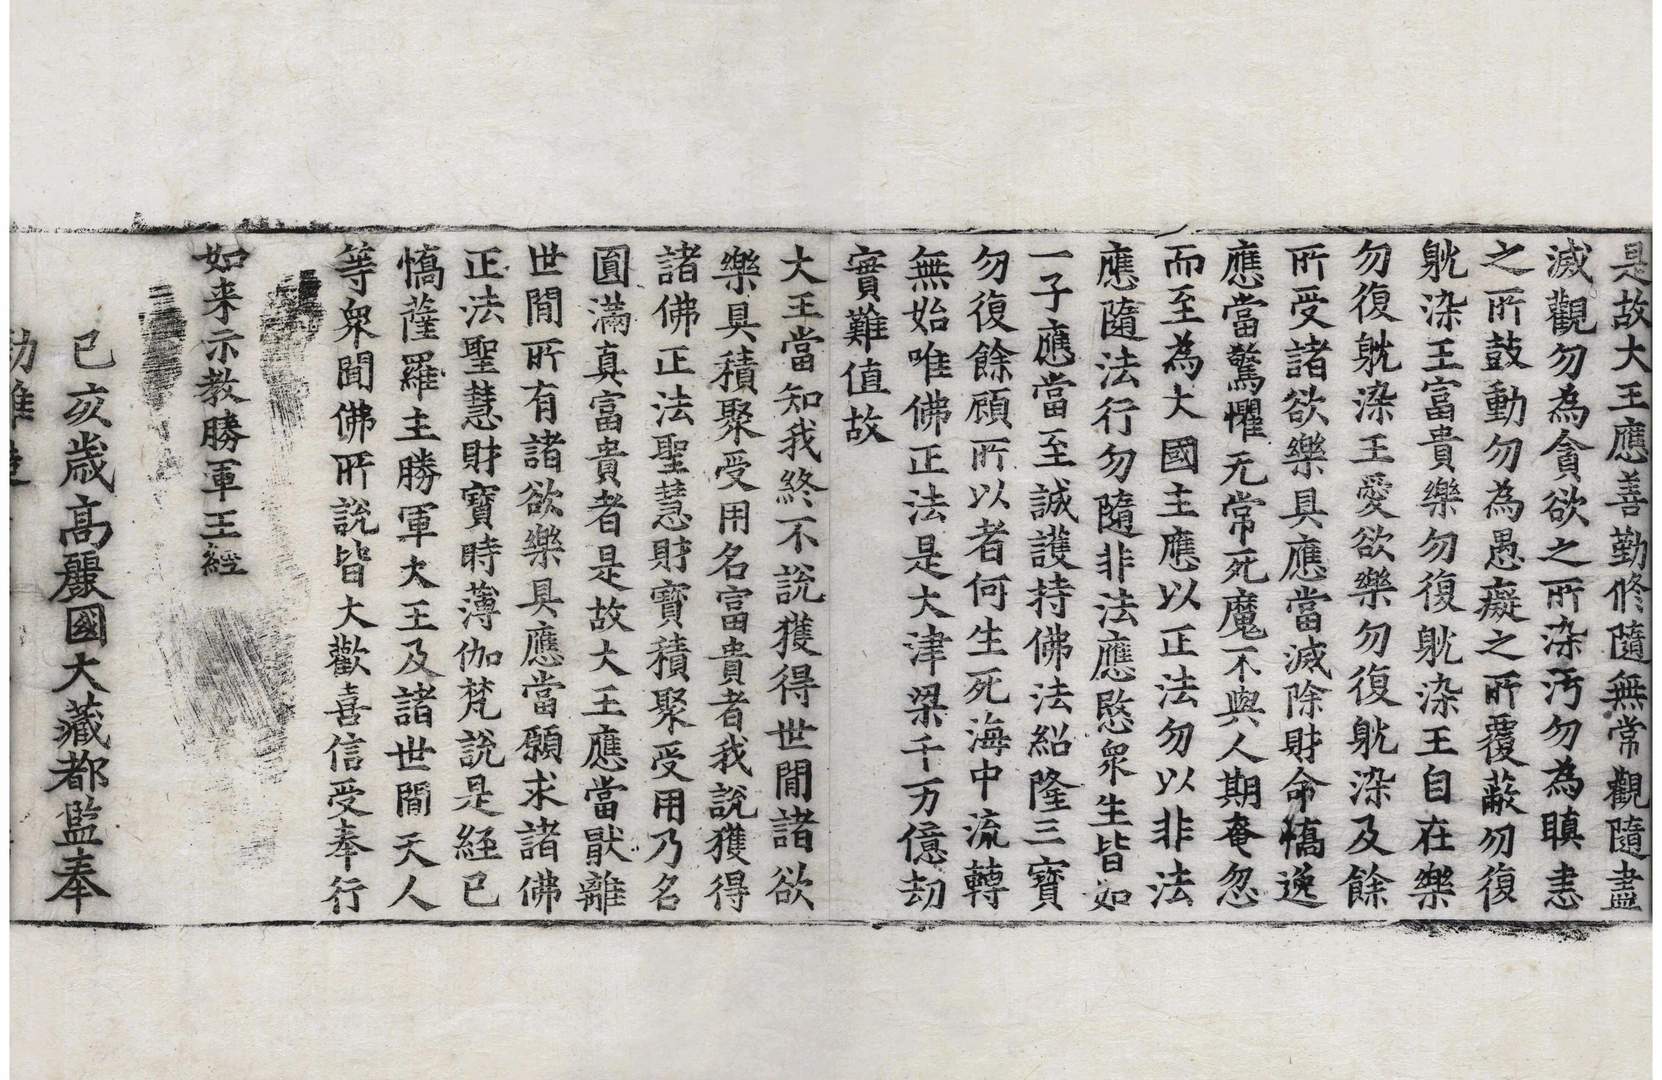 是故大王應善勤修隨無常觀隨盡
滅觀勿為貪欲之所染污勿為瞋恚
之所鼓動勿為愚癡之所覆蔽勿復
躭染王富貴樂勿復躭染王自在樂
勿復躭染王愛欲樂勿復躭染及餘
所受諸欲樂具應當減除財命憍逸
應當驚懼无常死魔不與人期奄忽
而至為大國主應以正法勿以非法
應隨法行勿隨非法應愍衆生皆如
一子應當至誠護持佛法紹隆三寶
勿復餘顧所以者何生死海中流轉
無始唯佛正法是大津梁千万億劫
實難值故
大王當知我終不說獲得世間諸欲
樂具積聚受用名富貴者我說獲得
諸佛正法聖慧財寶積聚受用乃名
圓滿真富貴者是故大王應當猒離
世間所有諸欲樂具應當願求諸佛
正法聖慧財寶時薄伽梵說是經已
憍薩羅主勝軍大王及諸世間天人
等衆聞佛所說皆大歡喜信受奉行
如来示教勝軍王經
己亥歲高麗國大藏都監奉
勅雕造